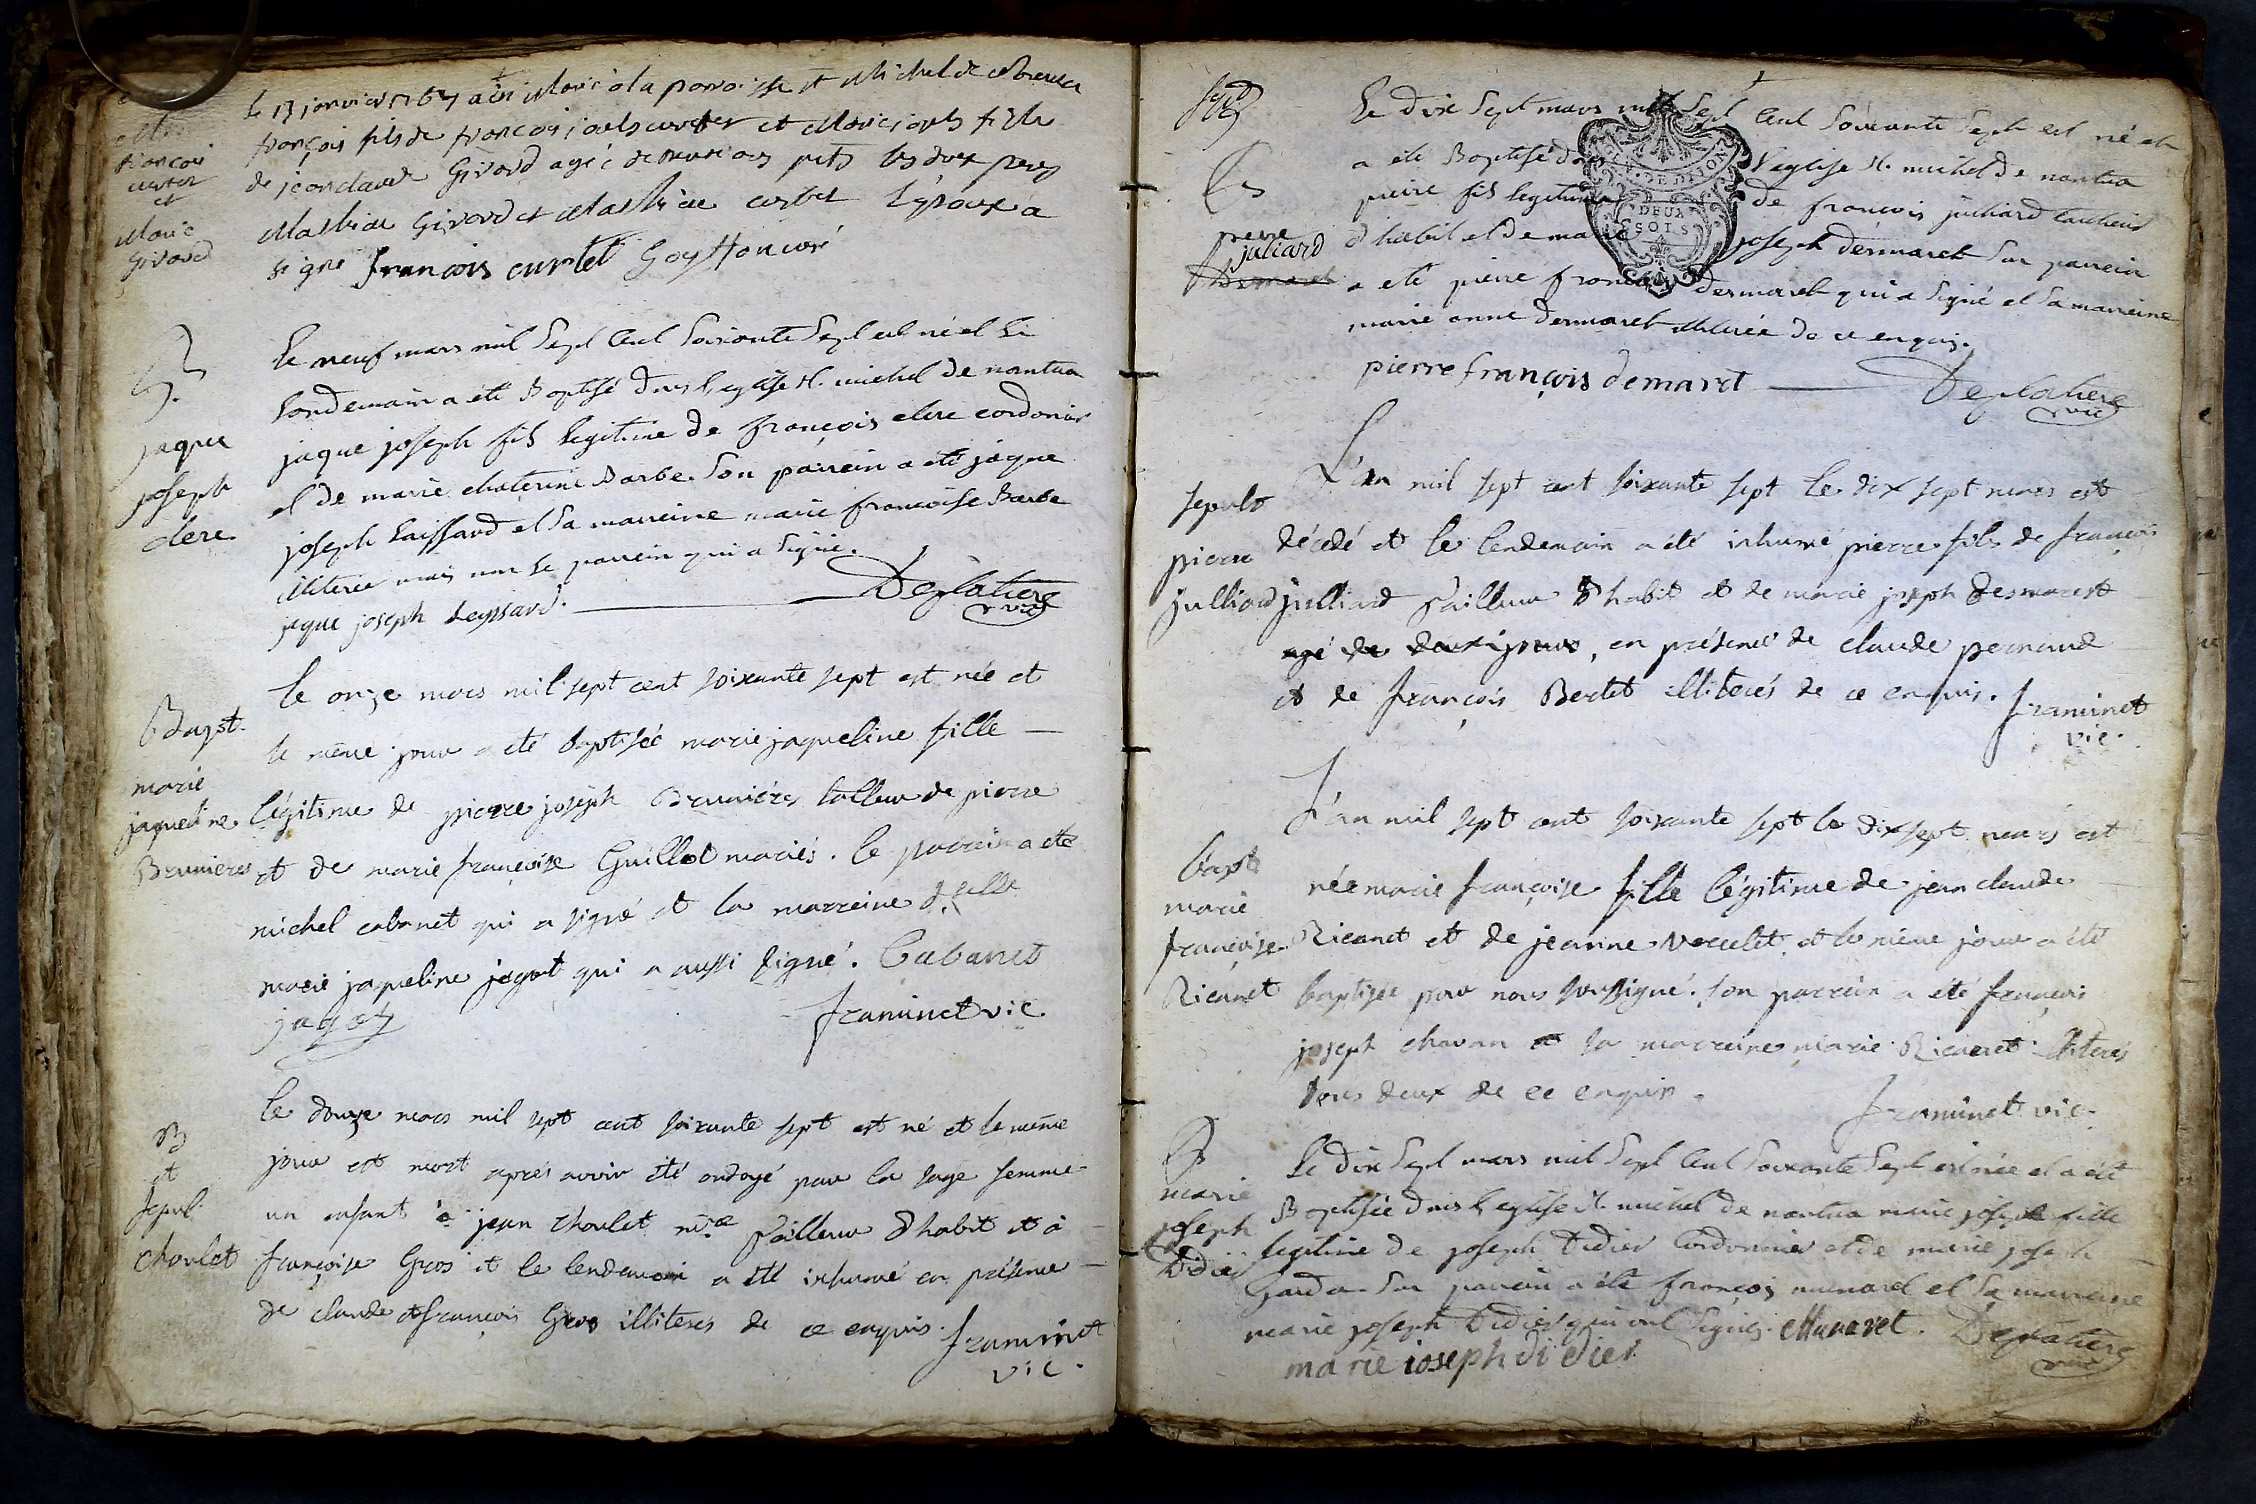 françois
curtet
et
Marie
Girard
le 13 janvier 1767 a été marié à la paroisse St Michel de
françois fils de françois joseph curtet et Marie fille
de jean claude Girard agée de ans pnts les deux peres
Girard et curtet l'epoux a
signé françois curtet Goyffon curé
B.
jaque
joseph
clere
Le neuf mars mil Sept Cent Soixante Sept est né et le
Lendemain a été Baptisé dans l'eglise St. michel de nantua
jaque joseph fils legitime de françois clere cordonier
et de marie chaterine Barbe. Son parrein a été jaque
joseph Laissard et Sa marreine marie françoise Barbe
illiterée mais non le parrein qui a Signé.
jaque joseph Leyssard. Deplatiere
vic
Bapst.
marie
jaqueline
Brunieres
le onze mars mil sept cent soixante sept est née et
le même jour a été baptisée marie jaqueline fille
légitime de pierre joseph Brunières tailleur de pierre
et de marie françoise Guillot mariés. le parrein a été
michel cabanet qui a signé et la marreine d.elle
marie jaqueline jagot qui a aussi signé. Cabanet
jagot framinet vic.
B
et
sepul.
Choulet
le douze mars mil sept cent soixante sept est né et le même
jour est mort après avoir été ondoyé par la sage femme
un enfant à jean choulet me tailleur d'habit et à
françoise Gros et le lendemain a été inhumé en présence
de claude et françois Gros illiterés de ce enquis. framinet
vic.
B
pierre
juliard
Desmaret
Le dix Sept mars mil Sept Cent Soixante Sept est né et
a été Baptisé dans l'eglise St. michel de nantua
pierre fils legitime de françois julliard tailleur
d'habit et de marie joseph desmaret Son parrein
a été pierre françois desmaret qui a Signé et Sa marreine
marie anne desmaret illiterée de ce enquis.
GEN. DE DIJON
DEUX
SOLS
pierre françois demaret Deplatiere
vic
sepult
pierre
julliard
L'an mil sept cent soixante sept le dix sept mars est
décedé et le lendemain a été inhumé pierre fils de françois
julliard tailleur d'habit et de marie joseph desmarest
agé de deux jours, en présence de claude pernaud
et de françois Bertet illiterés de ce enquis. framinet
vic.
bapt
marie
françoise
Ricanet
L'an mil sept cent soixante sept le dix sept mars est
née marie françoise fille légitime de jean claude
Ricanet et de jeanne vercelet et le même jour a été
baptisée par nous soussigné. son parrein a été françois
joseph chavan et sa marreine marie Ricanet illiterés
tous deux de ce enquis.
framinet vic.
B
marie
joseph
Didier
Le dix Sept mars mil Sept Cent Soixante Sept est née et a été
Baptisée dans l'eglise St. michel de nantua marie joseph fille
legitime de joseph Didier Cordonnier et de marie joseph
Garda. Son parrein a été françois munaret et Sa marreine
marie joseph Didier qui ont Signés. Munaret. Deplatiere
vic
marie ioseph didier